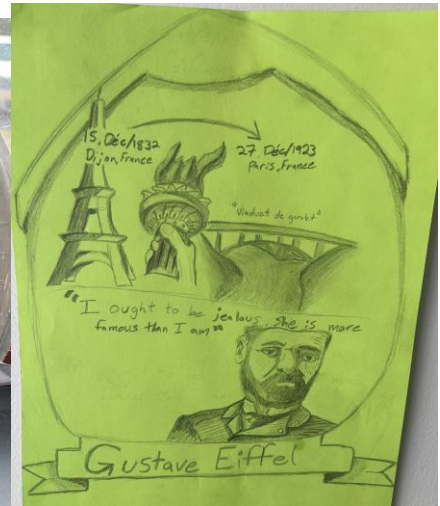 15, Déc/1832
Dijon, France
27, Déc/1923
Paris, France
"Viaduct de garabit"
"I ought to be jealous, She is more
famous than I am"
Gustave Eiffel